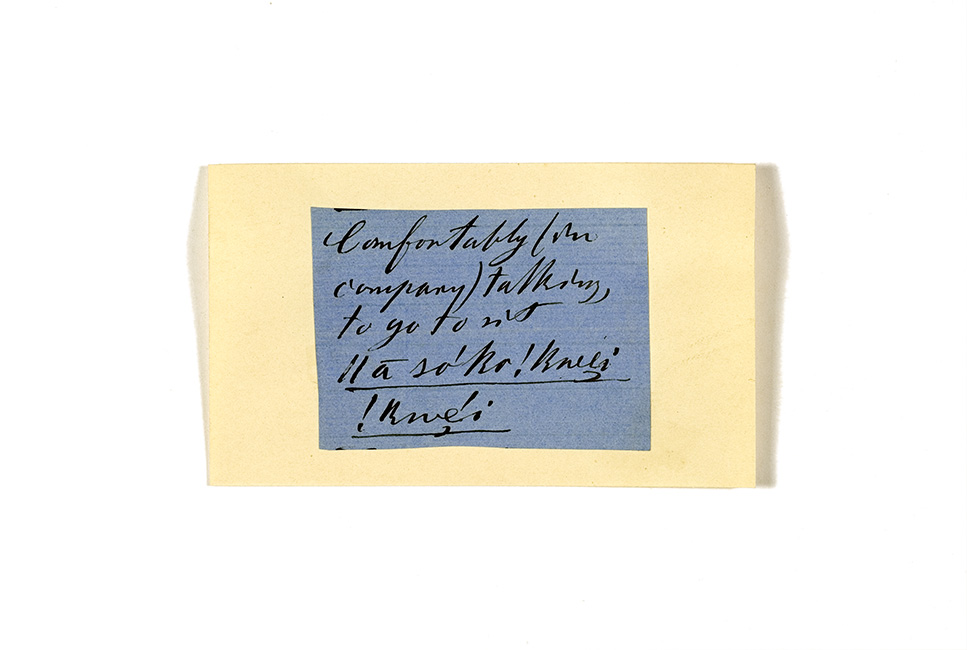 Comfortably (in
company) talking,
to go to sit
ǁā só ko !kwę́i
!kwę́i